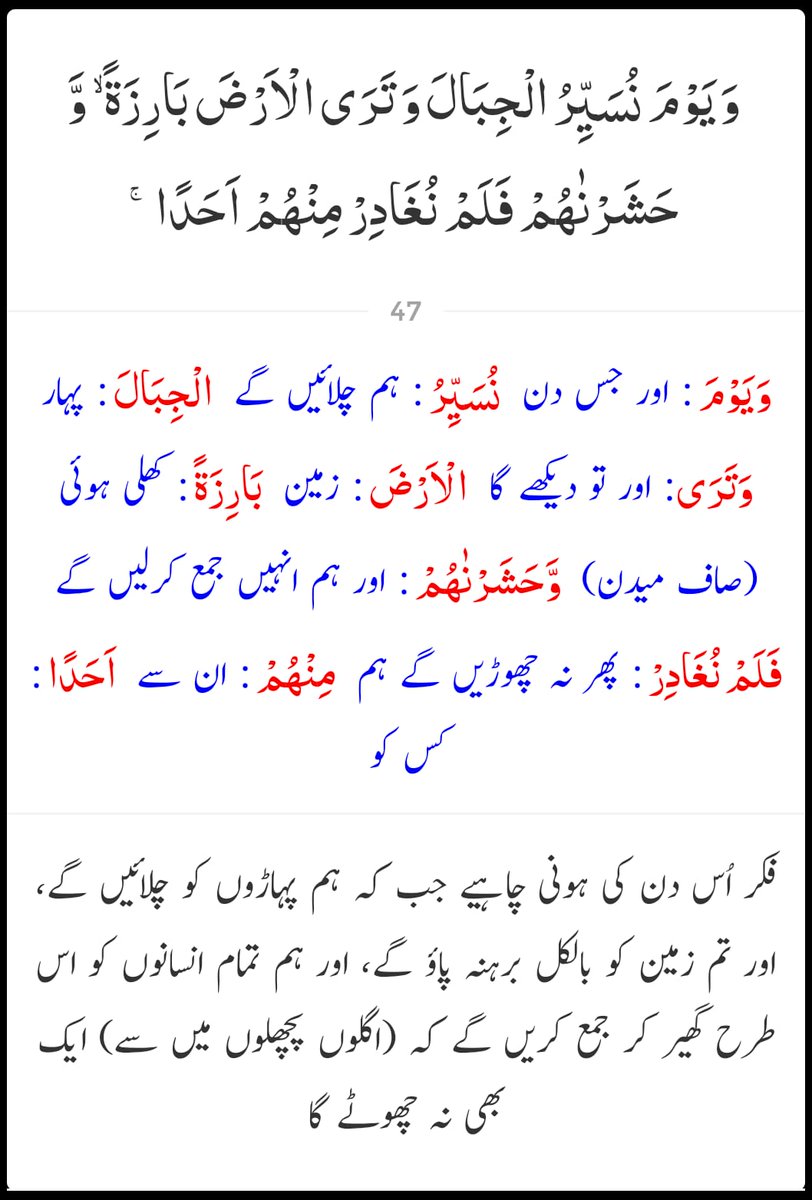 وَيَوْمَ نُسَيِّرُ الْجِبَالَ وَتَرَى الْاَرْضَ بَارِزَةًۙ وَّ
حَشَرْنٰهُمْ فَلَمْ نُغَادِرْ مِنْهُمْ اَحَدًا ۚ
47
وَيَوْمَ : اور جس دن نُسَيِّرُ : ہم چلائیں گے الْجِبَالَ : پہار
وَتَرَى : اور تو دیکھے گا الْاَرْضَ : زمین بَارِزَةً : کھلی ہوئی
(صاف میدن) وَّحَشَرْنٰهُمْ : اور ہم انہیں جمع کرلیں گے
فَلَمْ نُغَادِرْ : پھر نہ چھوڑیں گے ہم مِنْهُمْ : ان سے اَحَدًا :
کس کو
فکر اُس دن کی ہونی چاہیے جب کہ ہم پہاڑوں کو چلائیں گے،
اور تم زمین کو بالکل برہنہ پاؤ گے، اور ہم تمام انسانوں کو اس
طرح گھیر کر جمع کریں گے کہ (اگلوں پچھلوں میں سے) ایک
بھی نہ چھوٹے گا